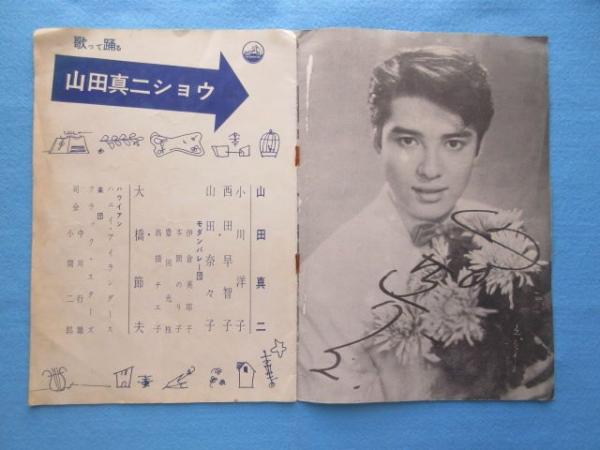 歌って踊る
山田真二ショウ
山田真二
小川洋子
西田早智子
山田奈々子
モダンバレー団
伊倉美耶子
本間のり子
豊田光枝
高橋チエ子
大橋節夫
ハワイアン
ハニイ・アイランダース
楽団
ブラック・スターズ
司会
中川行雄
小関二郎